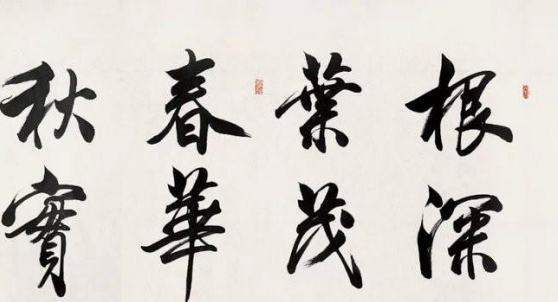 根深
葉茂
春華
秋實